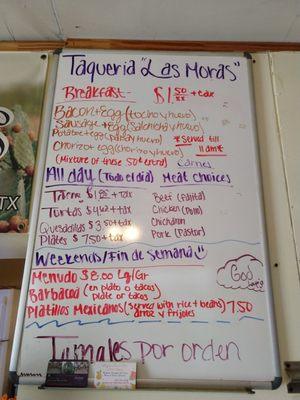 Taqueria "Las Moras"
Breakfast- $1.50 + tax
Bacon+Egg (tocino y huevo)
Sausage + Egg (Salchicha y huevo)
Potatoe+egg (papas y huevo) *Served till
Chorizo + egg (chorizo y huevo) 11am*
(Mixture of those 50¢ extra) Carnes
All day (Todo el dia) Meat Choices
+ tax Beef (Fajita)
Tortas $4.62 + tax Chicken (Pollo)
Quesadillas $3.50 + tax Chicharron
Plates $7.50 + tax Pork (Pastor)
Weekends/Fin de Semana
Menudo $8.00 Lg/Gr
Barbacoa (en plato o tacos)
plate or tacos
Platillos Mexicanos (served with rice + beans) 7.50
arroz y frijoles
Tamales por orden
TX